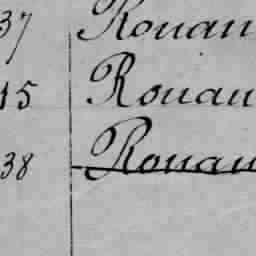 37 Rouan
15 Rouan
38 Rouan